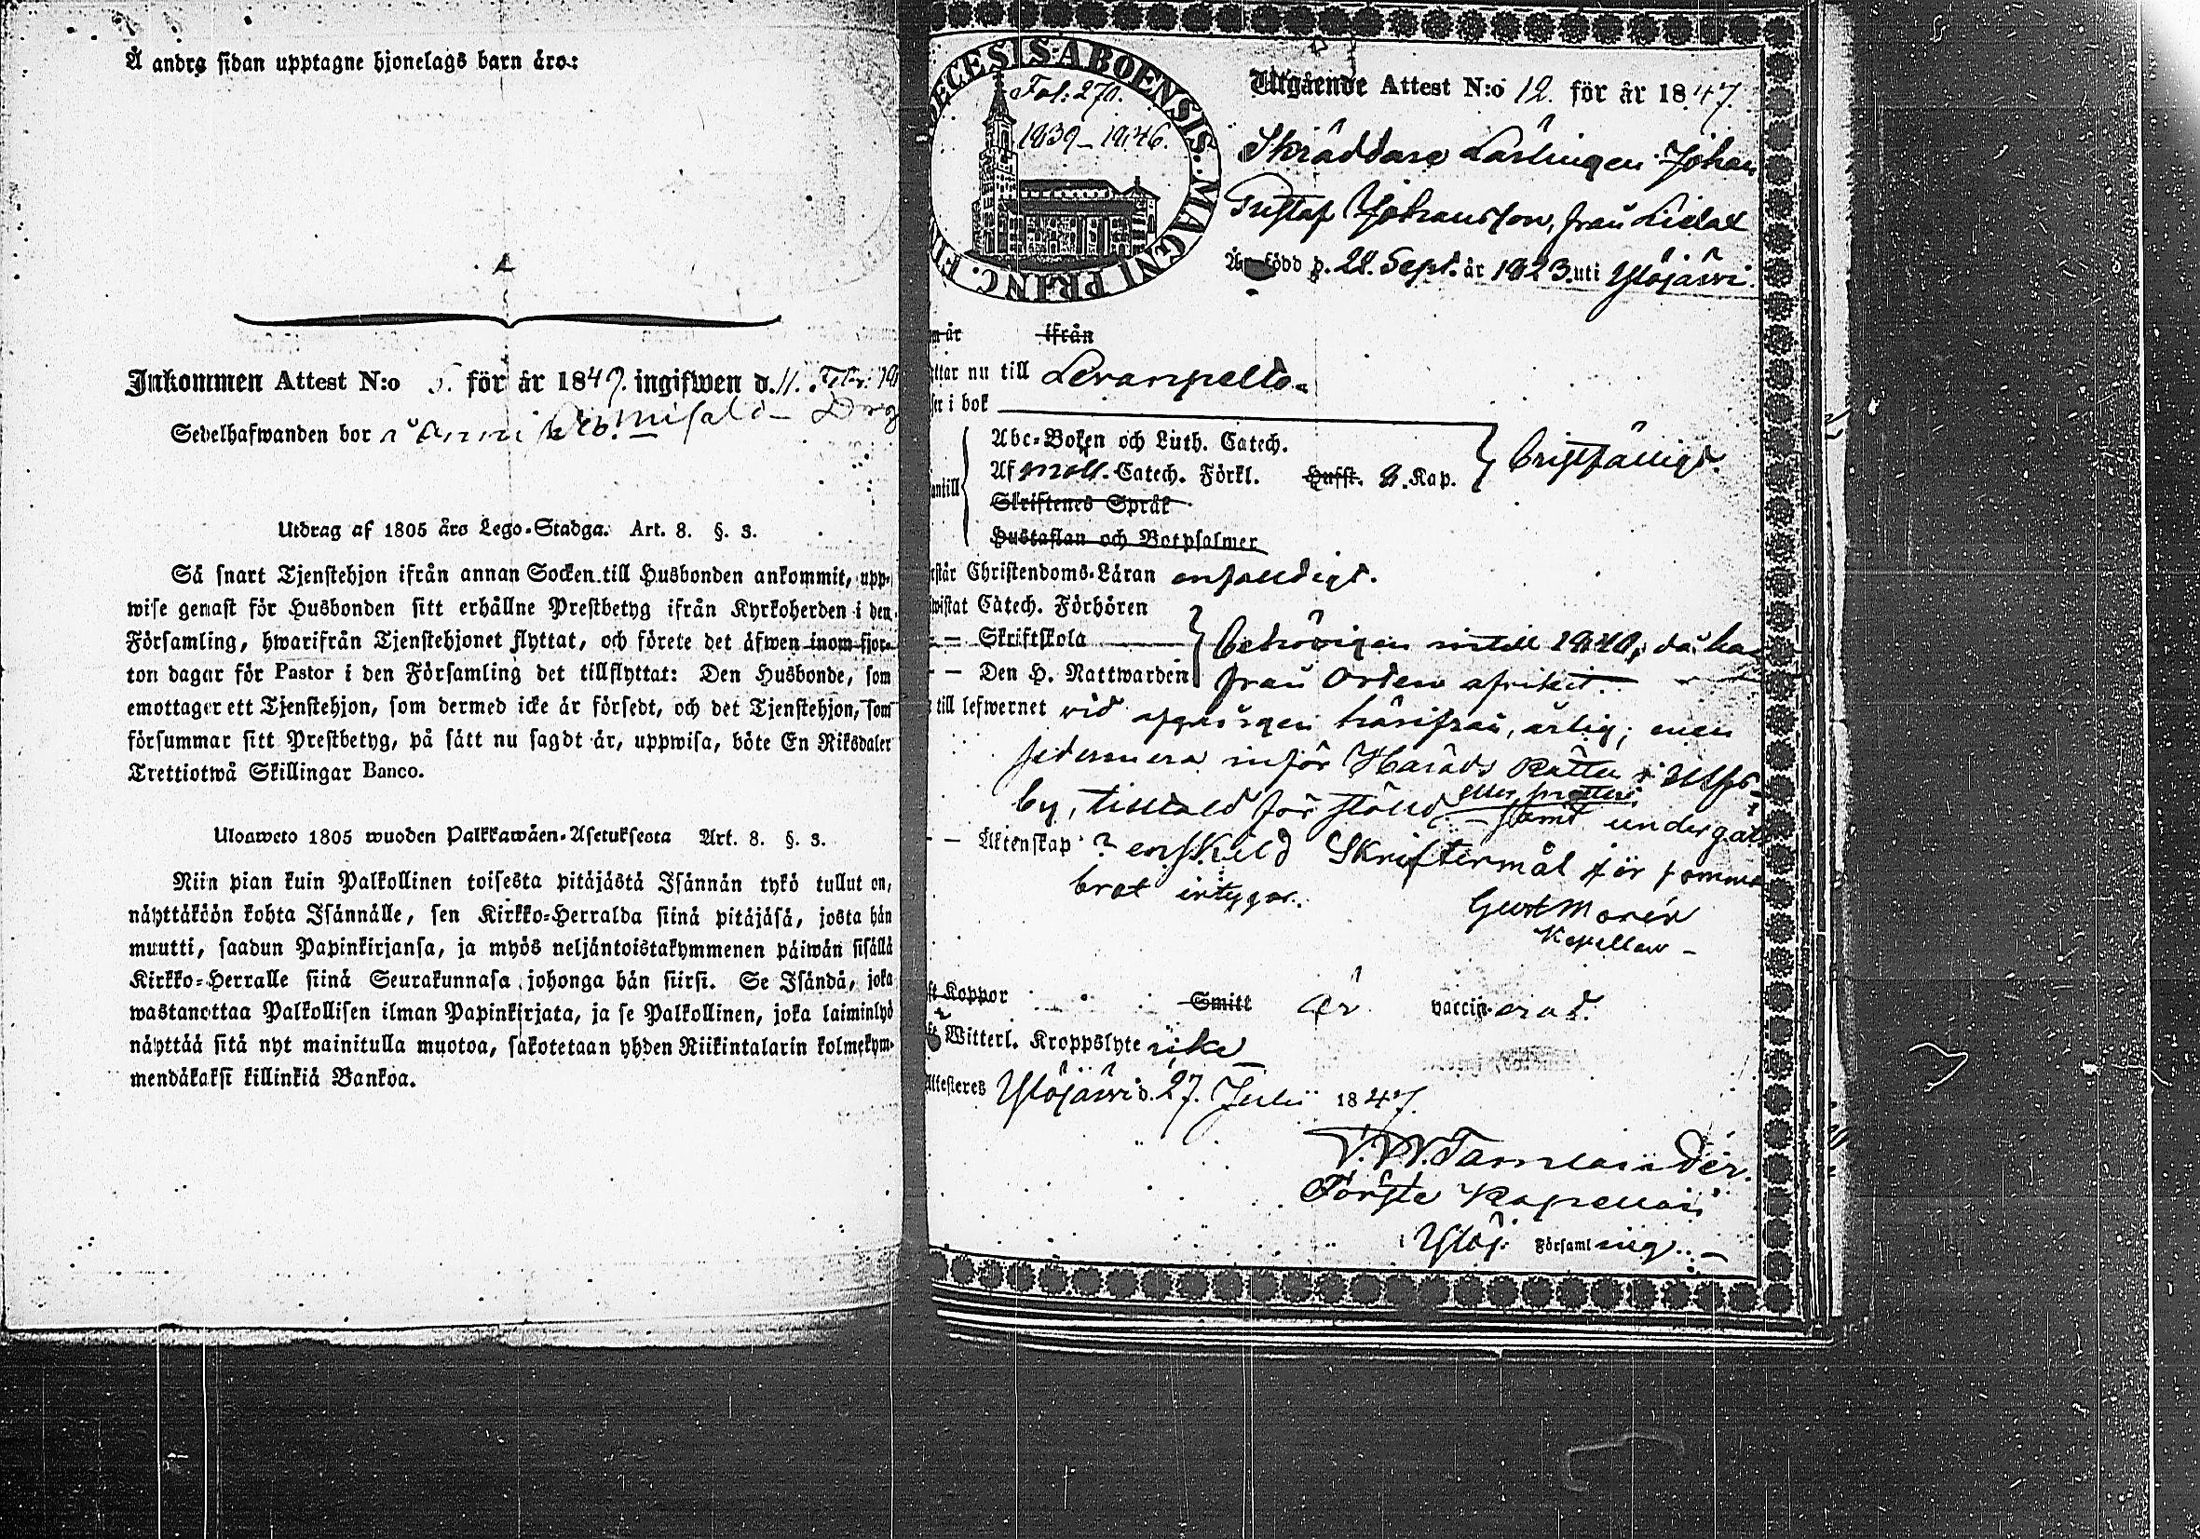 Å andra sidan upptagne hjonelags barn äro:
Inkommen Attest N:o 5. för år 1847. ingifwen d. 11.
Sedelhafwanden bor i
Utdrag af 1805 års Lego-Stadga. Art. 8. §. 3.
Så snart Tjenstehjon ifrån annan Socken till Husbonden ankommit, upp-
wise genast för Husbonden sitt erhållne Prestbetyg ifrån Kyrkoherden i den
Församling, hwarifrån Tjenstehjonet flyttat, och förete det äfwen inom fjor-
ton dagar för Pastor i den Församling det tillflyttat: Den Husbonde, som
emottager ett Tjenstehjon, som dermed icke är försedt, och det Tjenstehjon, som
försummar sitt Prestbetyg, på sätt nu sagdt är, uppwisa, böte En Riksdaler
Trettiotwå Skillingar Banco.
Ulosweto 1805 wuoden Palkkawäen-Asetuksesta Art. 8. §. 3.
Niin pian kuin Palkollinen toisesta pitäjästä Isännän tykö tullut on,
näyttäköön kohta Isännälle, sen Kirkko-Herralda siinä pitäjäsä, josta hän
muutti, saadun Papinkirjansa, ja myös neljäntoistakymmenen päiwän sisällä
Kirkko-Herralle siinä Seurakunnasa johonga hän siirsi. Se Isändä, joka
wastanottaa Palkollisen ilman Papinkirjata, ja se Palkollinen, joka laiminlyö
näyttää sitä nyt mainitulla muotoa, sakotetaan yhden Riikintalarin kolmekym-
mendäkaksi killinkiä Bankoa.
ECESIS·ABOENSIS·MAGNI PRINC. FIN
Fol: 270.
1839–1846.
Utgående Attest N:o 12. för år 1847.
Skräddare Lärlingen Johan
Gustaf Johansson, från
född d. 28. Sept. år 1823. uti Ylöjärwi.
m år ifrån
ttar nu till Levanpelto.
ser i bok
Abc-Boken och Luth. Catech.
Af moll. Catech. Förkl. Husst. Kap. bristfälligt.
antill
Skriftenes Språk
Hustaflan och Botpsalmer
rstår Christendoms-Läran enfaldigt.
wistat Catech. Förhören
– – Skriftskola behörigen intill 1840, då han
– – Den H. Nattwarden från Orden afvikit.
till lefwernet wid afgången härifrån, ärlig; men
sedermera inför Härads Rätten i Ulfs-
by, tilltald för stöld eller samt undergått
– – Äktenskap ? enskild Skriftermål för
brot intygar.
Gust Morén
Kapellan –
st Koppor Smitt är vaccinerad.
Witterl. Kroppslyte icke
Attesteres Ylöjärwi d. 27. Julii 1847.
Förste Kapellan
i Ylöj. Församling.